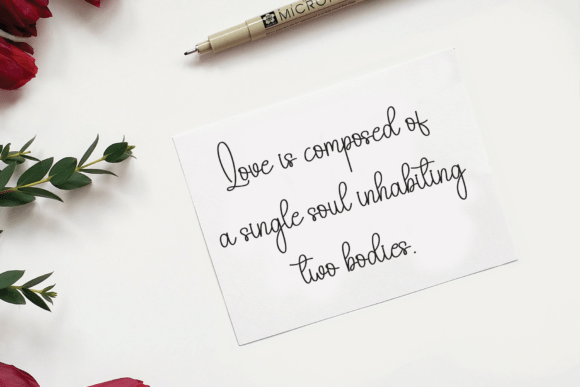 MICRO
Love is composed of
a single soul inhabiting
two bodies.